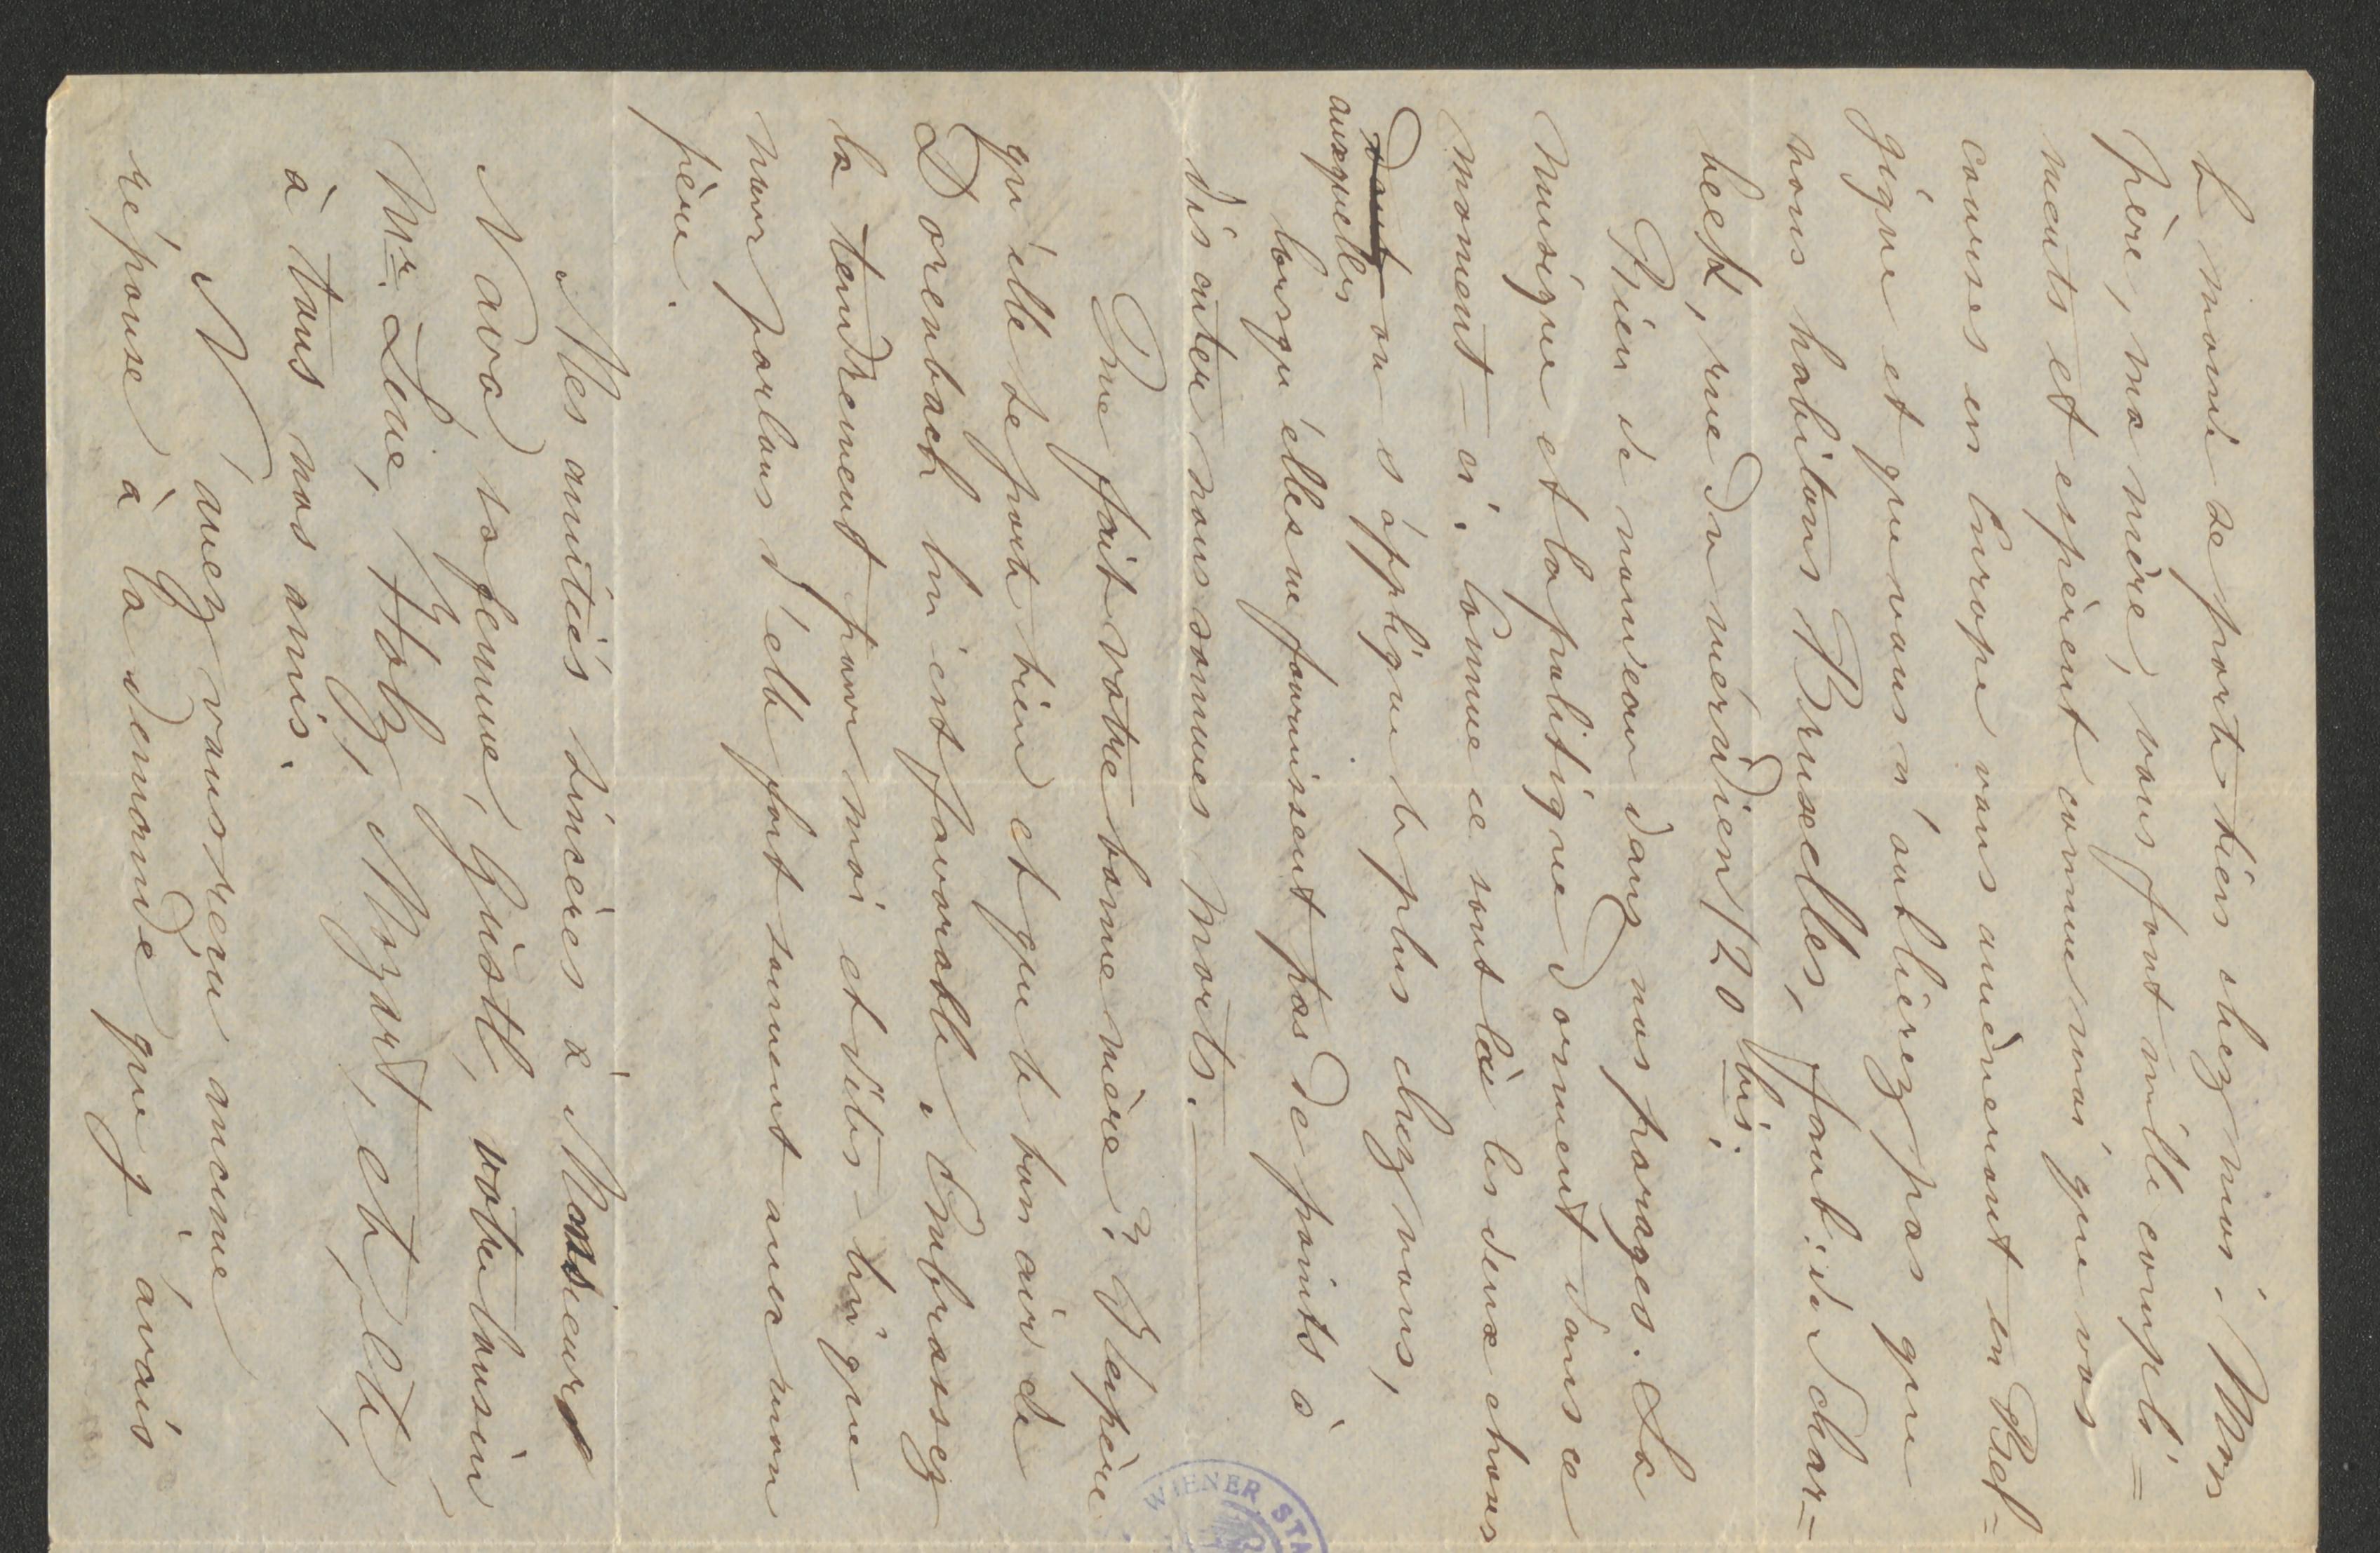 L monde se porte bien chez moi. Mon
père, ma mère, vous font mille compli=
ments et espèrent comme moi que vos
courses en Europe vous amèneront en Bel=
gique et que vous n'oublierez pas que
nous habitons Bruxelles, faub: de Schar=
beek, rue du méridien 120 bis.
Rien de nouveau dans nos parages. La
musique et la politique dorment dans ce
moment-ci. Comme ce sont là les deux choses
dont on s'applique le plus chez nous,
auxquelles
lorsqu'elles ne fournissent pas de points à
discuter nous sommes morts.—
Que fait votre bonne mère? J'espère
qu'elle se porte bien et que le bon air de
Dorenbach lui est favorable. Embrassez
la tendrement pour moi et dites-lui que
nous parlons d'elle fort souvent avec mon
père.
Mes amitiés sincères à Monsieur
Nava, sa femme, Gustl, votre Cousin
Mr. Lvie, Holz, Mozart, etc, etc,
à tous nos amis.
N'avez vous reçu aucune
réponse à la demande que j'avais
WIENER STA